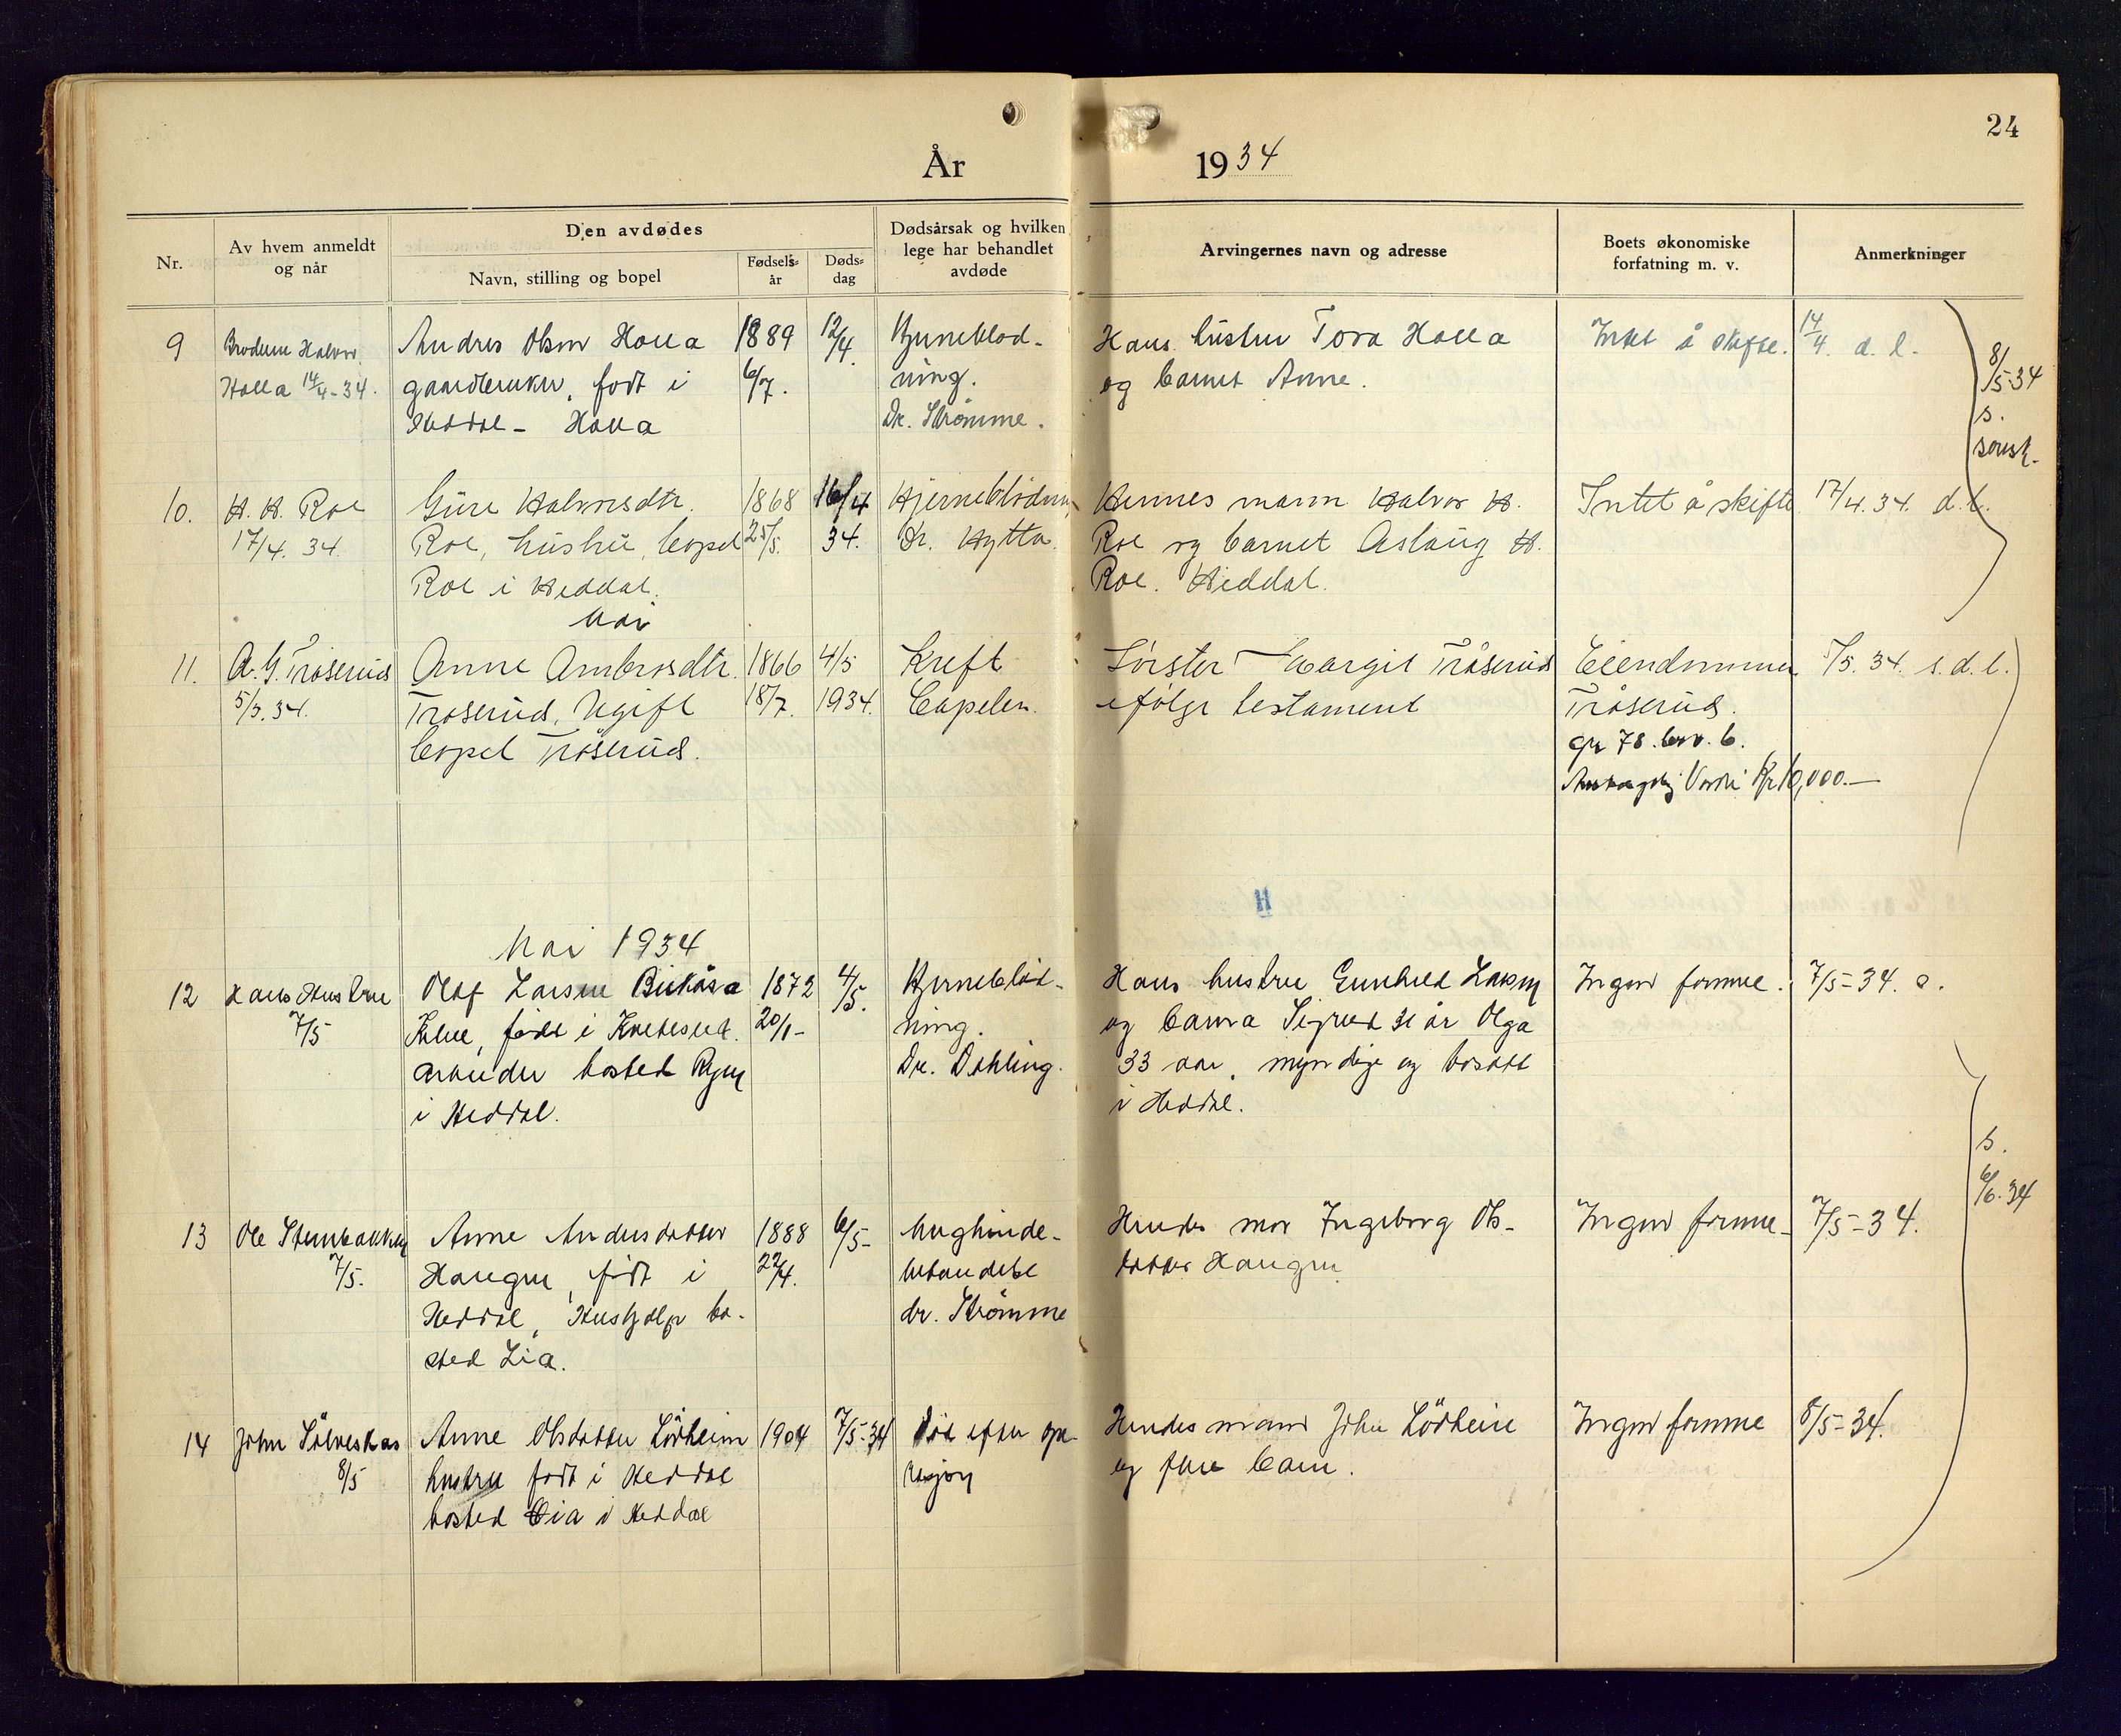 24
År 1934
Nr.
Av hvem anmeldt
og når
Den avdødes
Navn, stilling og bopel
Fødsels-
år
Døds-
dag
Dødsårsak og hvilken
lege har behandlet
avdøde
Arvingernes navn og adresse
Boets økonomiske
forfatning m. v.
Anmerkninger
9
Broderen Halvor
Holla 14/4-34.
Andres Olsen Holla
gaardbruker, født i
Heddal - Holla
1889
6/7.
12/4.
Hjerneblød-
ning.
Dr. Strømme.
Hans hustru Tora Holla
og barnet Anne.
Intet å skifte.
14/4. d. l.
8/5-34
s.
10.
H. H. Roe
17/4. 34.
Gure Halvorsdtr.
Roe, hustru, bopel
Roe i Heddal.
1868
25/5.
16/4
34.
Hjerneblødning
Dr. Hytta.
Hennes mann Halvor H.
Roe og barnet Aslaug H.
Roe. Heddal.
Intet å skifte
17/4. 34. d. l.
Mai
11.
A. G. Tråserud
5/5. 34.
Anne Ambrosdtr.
Tråserud, Ugift
bopel Tråserud.
1866
18/7.
4/5
1934.
Kreft
Capelen.
Søster Margit Tråserud
ifølge testament
Eiendommen
Tråserud.
gr 78. brv. 6.
Verdi Kr 10,000.—
5/5. 34. s. d. l.
H
Mai 1934
12
Hans Hustru
7/5
Olaf Larsen
født i Kviteseid.
arbeider bosted
i Heddal.
1872
20/1-
4/5.
Hjerneblød-
ning.
Dr. Dahling.
Hans hustru Gunhild Larsen
og barna Sigrid 31 år Olga
33 aar, myndige og bosatt
i Heddal.
Ingen formue.
7/5-34. s.
s.
6/6. 34
13
Ole Stenbakken
7/5.
Anne Andersdatter
Haugen, født i
Heddal, Hushjelp bo-
sted Lia.
1888
22/4.
6/5-
Bughinde-
betendelse
dr. Strømme
Hendes mor Ingeborg Ols-
datter Haugen
Ingen formue-
7/5-34.
14
John Sølveskas
8/5
Anne Olsdatter Lödheim
hustru født i Heddal
bosted Lia i Heddal
1904
7/5-34
Død efter ope-
rasjon
Hendes mand John Lödheim
og flere barn.
Ingen formue
8/5-34.